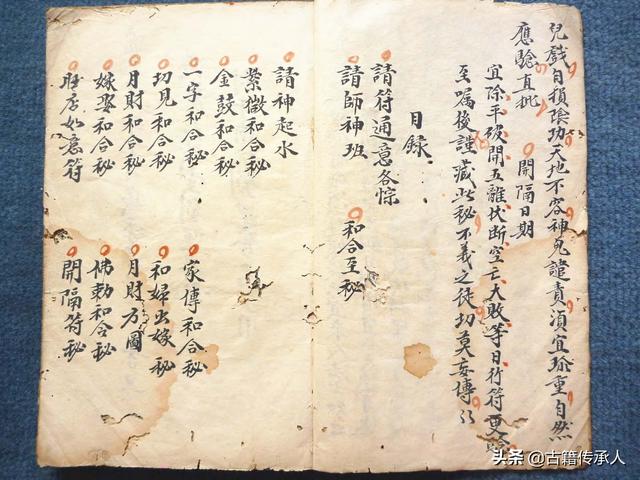 兒戲自損陰功天地不容神鬼譴責須宜珍重自然
應驗直批 開隔日期
宜除平破開五離伐断空亡大敗等日行符更
至嘱後謹藏此秘不義之徒切莫妄傳
目錄
請符通意各悰
和合至秘
請師神班
請神起水
紫微和合秘
金鼓和合秘
一字和合秘
切見和合秘
月財和合秘
嫁娶和合秘
旺店如意符
家傳和合秘
和婦出嫁秘
月財方圖
佛勅和合秘
開隔符秘
头条 @古籍传承人